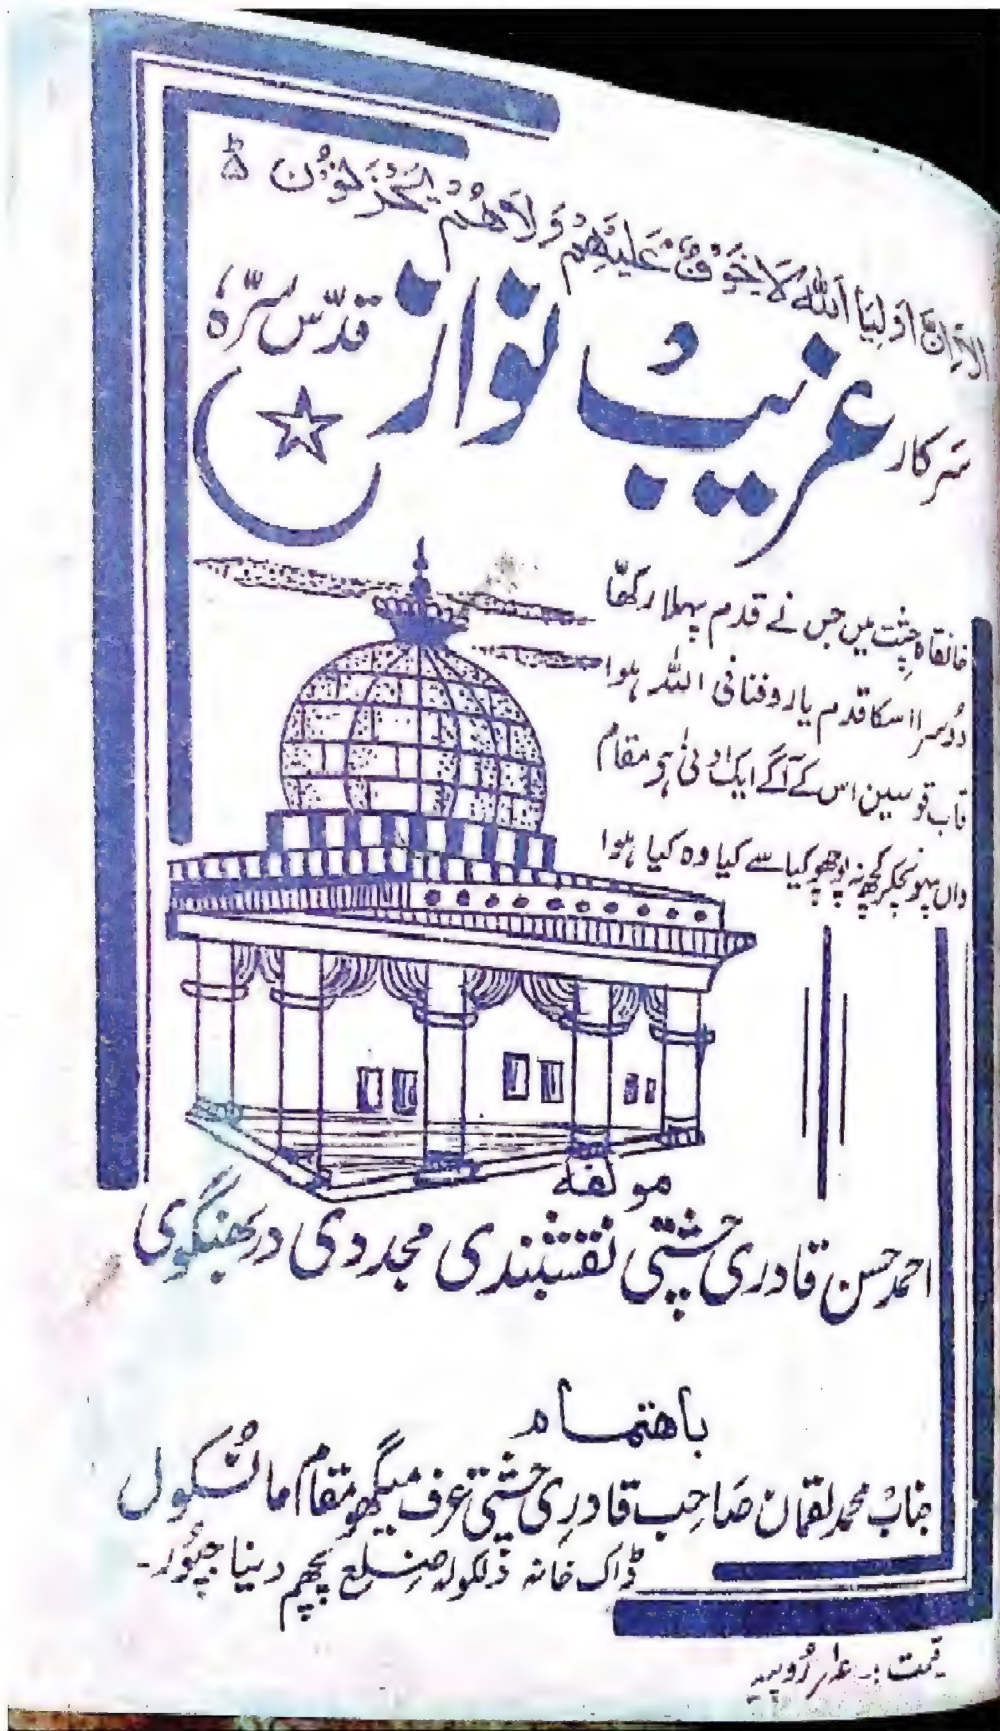 الا ان اولیا الله لا خوف علیهم ولا هم یحزنون ۵
سرکار غریب نواز قدس سرہ
خانقاہ چشت میں جس نے قدم پہلا رکھا
دوسرا اسکا قدم یارو فنا فی اللہ ہوا
قاب قوسین اس کے آگے ایک ادنیٰ ہو مقام
واں پہونچکر کچھ نہ پوچھو کیا سے کیا وہ کیا ہوا
مولفہ
احمد حسن قادری چشتی نقشبندی مجددی دربھنگوی
باھتمام
جناب محمد لقمان صاحب قادری چشتی عرف میگھو مقام
ڈاک خانہ ضلع پچھم دیناجپور۔
قیمت :۔ روپیہ